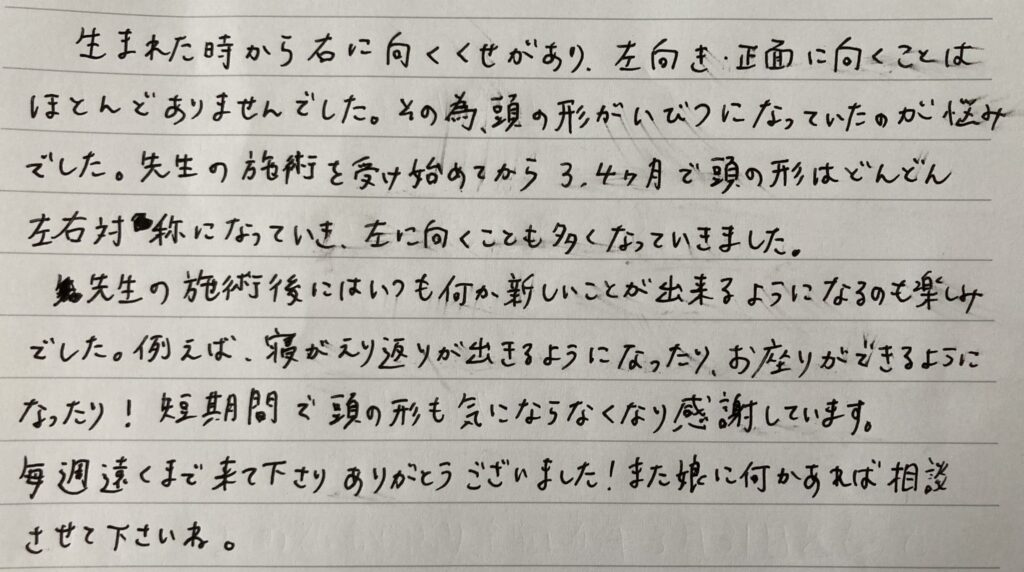 生まれた時から右に向くくせがあり、左向き・正面に向くことは
ほとんどありませんでした。その為、頭の形がいびつになっていたのが悩み
でした。先生の施術を受け始めてから3.4ヶ月で頭の形はどんどん
左右対称になっていき、左に向くことも多くなっていきました。
先生の施術後にはいつも何か新しいことが出来るようになるのも楽しみ
でした。例えば、寝がえり返りが出きるようになったり、お座りができるように
なったり!短期間で頭の形も気にならなくなり感謝しています。
毎週遠くまで来て下さりありがとうございました!また娘に何かあれば相談
させて下さいね。